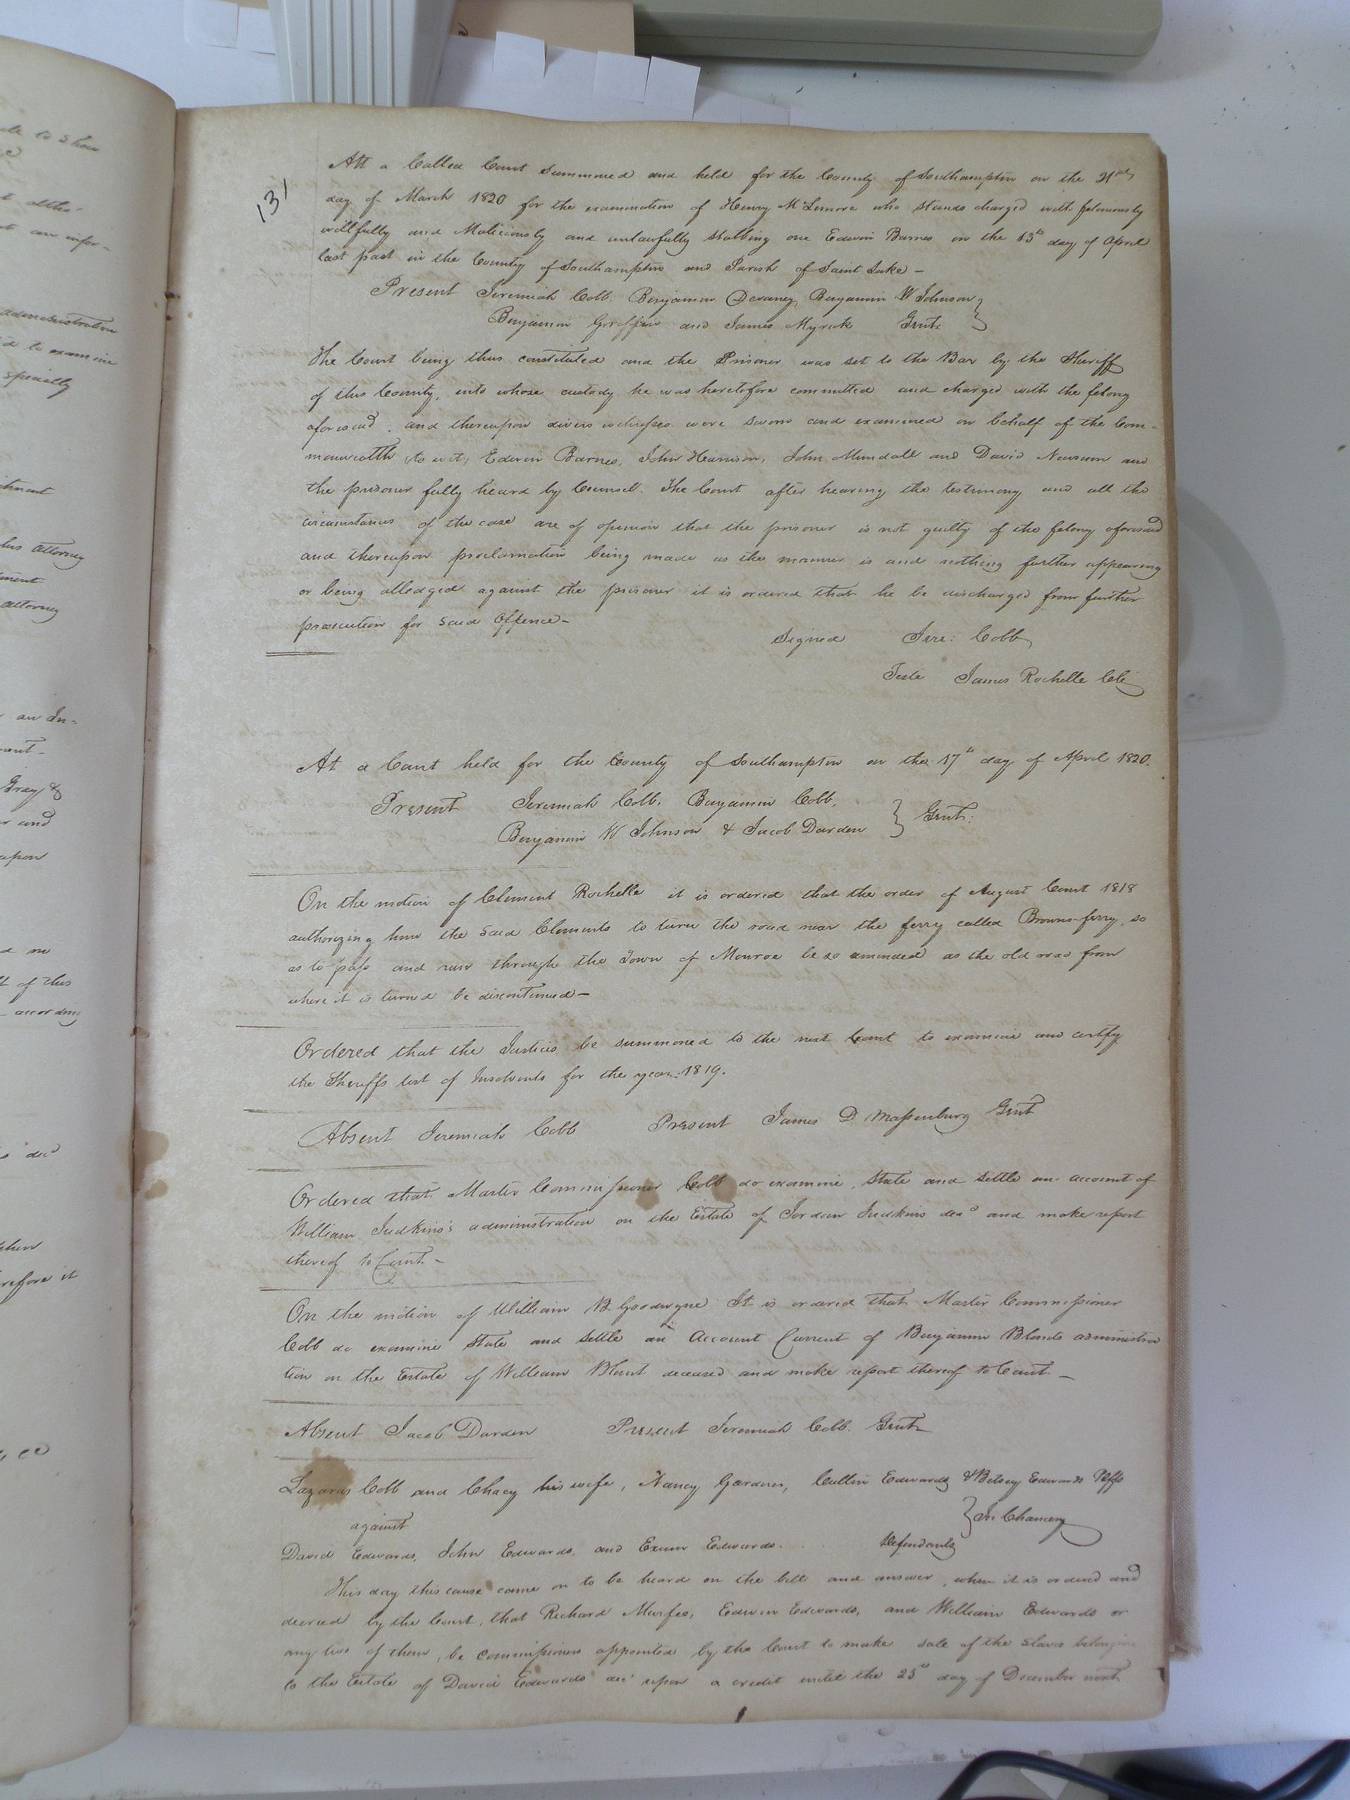 131
Att a Called Court Summoned and held for the County of Southampton on the 31st
day of March 1820 for the examination of Henry McLemore who stands charged with feloniously
willfully and Maliciously and unlawfully stabbing one Edwin Barnes on the 13th day of April
last past in the County of Southampton and Parish of Saint Luke -
Present Jeremiah Cobb. Benjamin Devaney, Benjamin W Johnson
Benjamin Griffin and James Myrick Gent:
The Court being thus constituted and the Prisoner was set to the Bar by the Sheriff
of this County, into whose custody he was heretofore committed and charged with the felony
aforesaid, and thereupon divers witnesses were sworn and examined on behalf of the Com-
monwealth, to wit, Edwin Barnes, John Harrison, John Mundall and David Newsum and
the prisoner fully heard by Counsel. The Court after hearing the testimony and all the
circumstances of the case are of opinion that the prisoner is not guilty of the felony aforesaid
and thereupon proclamation being made as the manner is and nothing further appearing
or being alledged against the prisoner it is ordered that he be discharged from further
prosecution for said Offence -
Signed Jere: Cobb
Teste James Rochelle Clk
At a Court held for the County of Southampton on the 17th day of April 1820.
Present Jeremiah Cobb, Benjamin Cobb,
Benjamin W Johnson & Jacob Darden } Gent:
On the motion of Clement Rochelle it is ordered that the order of August Court 1818
authorizing him the said Clements to turn the road near the ferry called Browns-ferry, so
as to pass and run through the Town of Monroe be so amended as the old road from
where it is turned be discontinued -
Ordered that the Justices be summoned to the next Court to examine and certify
the Sheriffs list of Insolvents for the year 1819.
Absent Jeremiah Cobb Present James D Massenburg Gent
Ordered that Master Commissioner Cobb do examine, State and settle an account of
William Judkins's administration on the Estate of Jordan Judkins decd and make report
thereof to Court -
On the motion of William B. Goodwyne It is ordered that Master Commissioner
Cobb do examine State and settle an Account Current of Benjamin Blunts administra
tion on the Estate of William Blunt deceased and make report thereof to Court -
Absent Jacob Darden Present Jeremiah Cobb. Gent
Lazarus Cobb and Chacy his wife, Nancy Gardner, Cullin Edwards & Betsey Edwards Plffs
against } In Chancery
David Edwards, John Edwards, and Exum Edwards. Defendants
This day this cause came on to be heard on the bill and answer, when it is ordered and
decreed by the Court, that Richard Murfee, Edwin Edwards, and William Edwards or
any two of them, be commissioners appointed by the Court to make sale of the slaves belonging
to the Estate of David Edwards decd upon a credit until the 25th day of December next